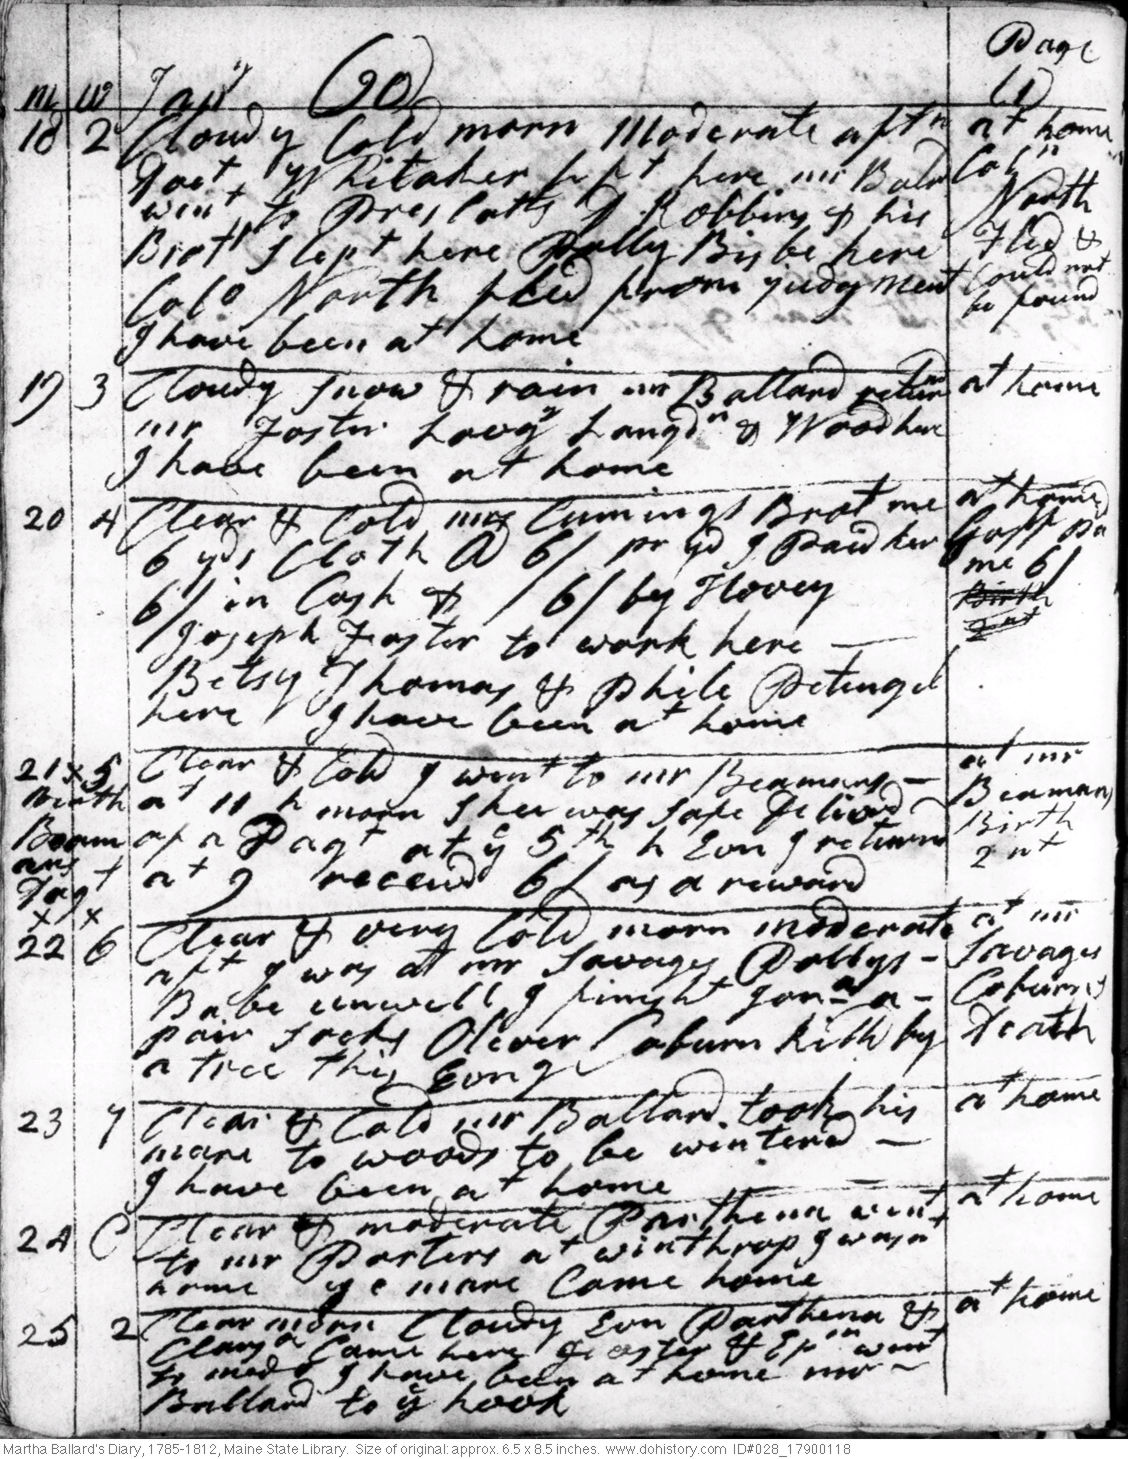 Page
m w Jany (90) (1)
18 2 Cloudy Cold morn Moderate aftn at home
Whitaker here mr Bald Coln
went to Prescatts J Robbins & his North
Brotr Slept here Polly Bisbe here Fled &
Colo North fled from Judgment Could not
I have been at home be found
19 3 Cloudy Snow & rain mr Ballard returnd at home
mr Foster Savg Langdn & Wood here
I have been at home
20 4 Clear & Cold mrs Cumings Brot me at home
6 yds Cloth @ 6/ pr yd I Paid her Goff Pd
6/ in Cash & /6/ by Hovey me 6/
Joseph Foster to work here Birth
Betsy Thomas & Phile Petingel 2nt
here I have been at home
21 x 5 Clear & Cold I went to mr Beamans at mr
Birth at 11 h morn Shee was Safe Delivrd Beamans
Beam of a Dagt at ye 5th h Evn I returnd Birth
ans at 9 receivd 6/ as a reward 2nt
Dagt
x x
22 6 Clear & very Cold morn moderate at mr
aft I was at mr Savages Pollys Savages
Babe unwell I finisht Jona a Coburns
pair Socks Oliver Coburn killd by Death
a tree this Evng
23 7 Clear & Cold mr Ballard took his at home
mare to woods to be winterd
I have been at home
24 C Clear & moderate Parthena went at home
to mr Porters at winthrop I was at
home ye mare Came home
25 2 Clear morn Cloudy Evn Parthena & at home
Came here & Epm went
to I have been at home mr
Ballard to ye hook
Martha Ballard's Diary, 1785-1812, Maine State Library. Size of original: approx. 6.5 x 8.5 inches. www.dohistory.com ID#028_17900118